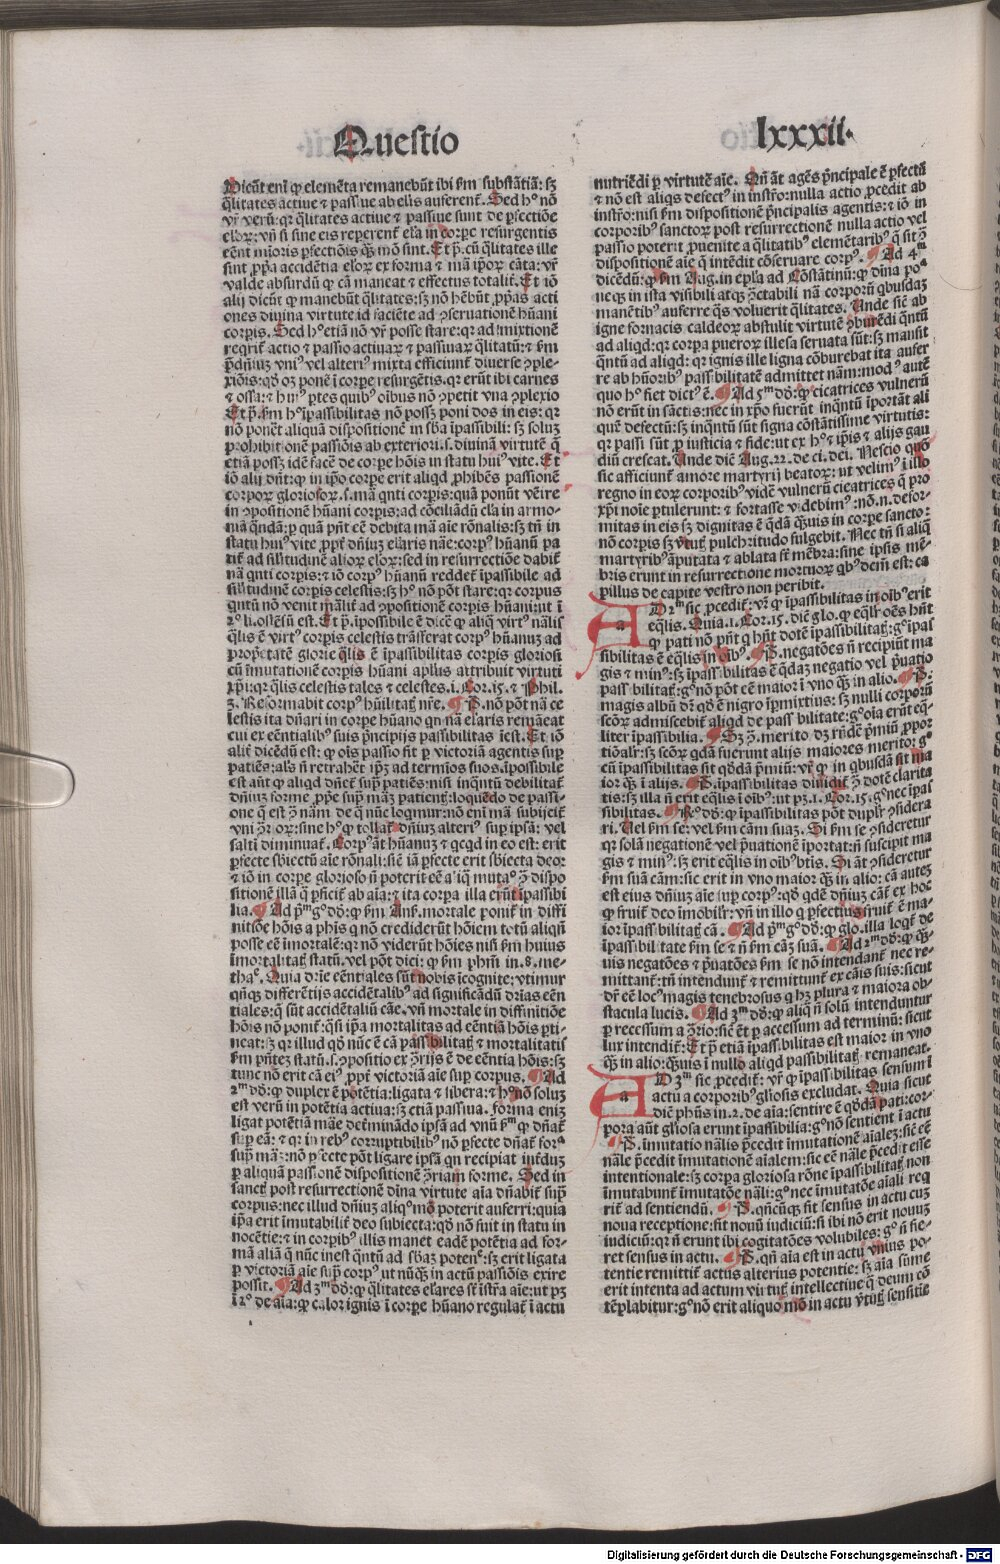 Questio
lxxxii.
Dicũt enĩ ꝙ elemẽta remanebũt ibi ẜm substãtiã: sꝫ
q̃litates actiue ⁊ passiue ab eis auferent̃. Sed hᵒ nõ
vr̃ verũ: qꝛ q̃litates actiue ⁊ passiue sunt de ꝑfectiõe
eloꝝ: vñ si sine eis reperent̃ ela in corpe resurgentis
eẽnt minoris ꝑfectiõis qꝫ mõ sunt. Et p̃. cũ q̃litates ille
sint ꝓpria accidẽtia eloꝝ ex forma ⁊ mã ip̃oꝝ cãta: vr̃
valde absurdũ ꝙ cã maneat ⁊ effectus totalit̃. Et iõ
alij dicũt ꝙ manebũt q̃litates: sꝫ nõ hẽbũt ꝓprias acti
ones diuina virtute id faciẽte ad ꝯseruationẽ hũani
corpis. Sed hᵒ etiã nõ vr̃ posse stare: qꝛ ad mixtionẽ
reqrit̃ actio ⁊ passio actiuaꝝ ⁊ passiuaꝝ q̃litatũ: ⁊ ẜm
p̃dñiuꝫ vniᵒ vel alteriᵒ mixta efficiunt̃ diuerse ꝯple-
xiõis: qđ oꝫ ponẽ ĩ corpe resurgẽtis. qꝛ erũt ibi carnes
⁊ ossa: ⁊ hmõi ptes quibᵒ oĩbus nõ ꝯpetit vna ꝯplexio
Et p̃. ẜm hᵒ ĩpassibilitas nõ possꝫ poni dos in eis: qꝛ
nõ ponẽt aliquã dispositionẽ in sba ĩpassibili: sꝫ soluꝫ
prohibitionẽ passiõis ab exteriori. s. diuinã virtutẽ q̃
etiã possꝫ idẽ facẽ de corpe hõis in statu huiᵒ vite. Et
iõ alij dñt: ꝙ in ip̃o corpe erit aliqd ꝓhibẽs passionẽ
corpoꝝ glorioſoꝝ. s. mã qnti corpis: quã ponũt vẽire
in ꝯpositionẽ hũani corpis: ad cõciliãdũ ela in armo-
niã qñdã: ꝑ quã pñt eẽ debita mã aĩe rõnalis: sꝫ tñ in
statu huiᵒ vite ꝓpt̃ dñiuꝫ elaris nãe: corpᵒ hũanũ pa
tit̃ ad siĩlitudinẽ alioꝝ eloꝝ: sed in resurrectiõe dabit̃
nã qnti corpis: ⁊ iõ corpᵒ hũanũ reddet̃ ĩpassibile ad
siĩlitudinẽ corpis celestis: sꝫ hᵒ nõ põt stare: qꝛ corpus
qntũ nõ venit mãlit̃ ad ꝯpositionẽ corpis hũani: ut ĩ
2º li. oſtẽſũ est. Et p̃. ĩpossibile ẽ dicẽ ꝙ aliq̃ virtᵒ nãlis
q̃lis ẽ virtᵒ corpis celestis trãsserat corpᵒ hũanuꝫ ad
propẽtatẽ glorie q̃lis ẽ ĩpassibilitas corpis gloriosi
cũ ĩmutationẽ corpis hũani aplus attribuit virtuti
xp̃i: qꝛ q̃lis celestis tales ⁊ celestes. i. Cor. 15. ⁊ Phil.
3. Reformabit corpᵒ hũilitaꝭ nr̃e. ¶ P̃. nõ põt nã ce
lestis ita dñari in corpe hũano qn nã elaris remãeat
cui ex eẽntialibᵒ suis p̃ncipijs passibilitas ĩest. Et iõ
alit̃ dicẽdũ est: ꝙ oĩs passio fit ꝑ victoriã agentis suꝑ
patiẽs: als ñ retrahẽt ip̃ꝫ ad termĩos suos. ĩpossibile
est aũt ꝙ aliqd dñet̃ suꝑ patiẽs: nisi inqntũ debilitat̃
dñiuꝫ forme ꝓprie suꝑ mãꝫ patientꝭ: loquẽdo de passi-
one q̃ est ꝯ̃ nãm de q̃ nũc loqmr̃: nõ enĩ mã subijcit̃
vni ꝯ̃rioꝝ: sine hᵒ ꝙ tollat̃ dñiuꝫ alteriᵒ suꝑ ipsã: vel
saltĩ diminuat̃. Corpᵒ aũt hũanuꝫ ⁊ qcqd in eo est: erit
ꝑfecte sbiectũ aĩe rõnali: sic̃ iã ꝑfecte erit sbiecta deo:
⁊ iõ in corpe glorioso ñ poterit eẽ aliq̃ mutaᵒ ꝯ̃ dispo
sitionẽ illã q̃ ꝑficit̃ ab aĩa: ⁊ ita corpa illa erũt ĩpassibi
lia. ¶ Ad p̃ᵐ gᵒ dõꝫ: ꝙ ẜm Anſ. mortale ponit̃ in diffi
nitiõe hõis a phis q nõ crediderũt hõiem totũ aliqñ
posse eẽ ĩmortalẽ: qꝛ nõ viderũt hõies nisi ẜm huius
ĩmortalitaꝭ statũ. vel põt dici: ꝙ ẜm phm̃ in. 8. me-
thaᵉ. Quia dr̃ie eẽntiales sũt nobis icognite: vtimur
qñqꝫ differẽtijs accidẽtalibᵒ ad significãdũ dr̃ias eẽn
tiales: q̃ sũt accidẽtaliũ cãe. vñ mortale in diffinitiõe
hõis nõ ponit̃: q̃si ipã mortalitas ad eẽntiã hõis ꝑti-
neat: sꝫ qꝛ illud qđ nũc ẽ cã passibilitatꝭ ⁊ mortalitatis
ẜm p̃ntẽ statũ. s. ꝯpositio ex ꝯ̃rijs ẽ de eẽntia hõis: sꝫ
tunc nõ erit cã eiᵒ ꝓpt̃ victoriã aĩe suꝑ corpus. ¶ Ad
2ᵐ dõꝫ: ꝙ duplex ẽ põtia: ligata ⁊ libera: ⁊ hᵒ nõ soluꝫ
est verũ in potẽtia actiua: sꝫ etiã passiua. forma eniꝫ
ligat potẽtiã mãe detminãdo ipsã ad vnũ ẜm qđ dñat̃
suꝑ eã: ⁊ qꝛ in rebᵒ corruptibilibᵒ nõ ꝑfecte dñat̃ forᵃ
suꝑ mãꝫ: nõ ꝑfecte põt ligare ipsã qn recipiat int̃duꝫ
ꝑ aliquã passionẽ dispositionẽ ꝯ̃riam forme. Sed in
sanctꝭ post resurrectionẽ diña virtute aĩa dñabit̃ suꝑ
corpus: nec illud dñiuꝫ aliqᵒ mõ poterit auferri: quia
ipã erit ĩmutabilit̃ deo subiecta: qđ nõ fuit in statu in
nocẽtie: ⁊ in corpibᵒ illis manet eadẽ potẽtia ad for-
mã aliã q̃ nũc inest qntũ ad sbãꝫ potenᵉ: sꝫ erit ligata
ꝑ victoriã aĩe suꝑ corpᵒ ut nũqꝫ in actũ passiõis exire
possit. ¶ Ad 3ᵐ dõꝫ: ꝙ q̃litates elares st̃ ĩstr̃a aĩe: ut pꝫ
ĩ 2º de aĩa: ꝙ calor ignis ĩ corpe hũano regulat̃ ĩ actu
nutriẽdi ꝑ virtutẽ aĩe. Qñ ãt agẽs p̃ncipale ẽ ꝑfectũ
⁊ nõ est aliqs defectᵒ in instr̃o: nulla actio ꝓcedit ab
instr̃o: nisi ẜm dispositionẽ p̃ncipalis agentis: ⁊ iõ in
corporibᵒ sanctoꝝ post resurrectionẽ nulla actio vel
passio poterit ꝓuenite a q̃litatibᵒ elemẽtaribᵒ q̃ sit ꝯ̃
dispositionẽ aĩe q̃ intẽdit cõseruare corpᵒ. ¶ Ad 4ᵐ
dicẽdũ: ꝙ ẜm Aug. in epla ad Cõstãtinũ: ꝙ diña poᵃ
neqꝫ in ista visibili atqꝫ ꝯ̃ctabili nã corporũ qbusdaꝫ
manẽtibᵒ auferre q̃s voluerit q̃litates. Unde sic̃ ab
igne fornacis caldeoꝝ abstulit virtutẽ ꝯburẽdi qntũ
ad aliqd: qꝛ corpa pueroꝝ illesa seruata sũt: sꝫ mansit
qntũ ad aliqd: qꝛ ignis ille ligna cõburebat ita aufer
re ab hũoribᵒ passibilitatẽ admittet nãm: modᵒ autẽ
quo hᵒ fiet dictᵒ ẽ. ¶ Ad 5ᵐ dõꝫ: ꝙ cicatrices vulnerũ
nõ erũt in sãctis: nec in xp̃o fuerũt inqntũ ĩportãt ali
quẽ defectũ: sꝫ inqntũ sũt signa cõstãtissime virtutis:
qꝛ passi sũt ꝑ iusticia ⁊ fide: ut ex hᵒ ⁊ ip̃is ⁊ alijs gau
diũ crescat. Unde dicit Aug. 22. de ci. dei. Nescio quõ
sic afficiunt̃ amore martyrij beatoꝝ: ut velimᵒ ĩ illo
regno in eoꝝ corporibᵒ vidẽ vulnerũ cicatrices q̃ pro
xp̃i noĩe ꝑtulerunt: ⁊ fortasse videbimᵒ: nõ. n. defor-
mitas in eis sꝫ dignitas ẽ q̃dã qꝫuis in corpe sancto:
nõ corpis sꝫ vtutꝭ pulchritudo fulgebit. Nec tñ si aliq̃
martyribᵒ ãputata ⁊ ablata st̃ mẽbra: sine ipsis mẽ-
bris erunt in resurrectione mortuoꝝ qbᵒ dcm̃ est: ca
pillus de capite vestro non peribit.
AD 2ᵐ sic ꝓcedit̃: vr̃ ꝙ ĩpassibilitas in oĩbᵒ erit
eq̃lis. Quia. 1. Cor. 15. diẽ glo. ꝙ eq̃lr̃ oẽs hñt
ꝙ pati nõ pñt q hñt dotẽ ĩpassibilitatꝭ: gᵒ ĩpas
sibilitas ẽ eq̃lis in oĩbᵒ. ¶ P̃. negatões ñ recipiũt ma
gis ⁊ minᵒ: sꝫ ĩpassibilitas ẽ q̃daꝫ negatio vel p̃uatio
passibilitatꝭ: gᵒ nõ põt eẽ maior ĩ vno qꝫ in alio. ¶ P̃.
magis albũ dr̃ qđ ẽ nigro ĩpmixtius: sꝫ nulli corporũ
scõꝝ admiscebit̃ aliqd de passibilitate: gᵒ oĩa erũt eq̃-
liter ĩpassibilia. ¶ Sꝫ ꝯ̃. merito dꝫ rñdẽ p̃miũ ꝓpor
tiõalr̃: sꝫ scõꝝ qdã fuerunt alijs maiores merito: gᵒ
cũ ĩpassibilitas sit qõdã p̃miũ: vr̃ ꝙ in qbusdã sit ma
ior qꝫ ĩ alijs. ¶ P̃. ĩpassibilitas diuidit̃ ꝯ̃ dotẽ clarita
tis: sꝫ illa ñ erit eq̃lis ĩ oĩbᵒ: ut pꝫ. 1. Cor. 15. gᵒ nec ĩpas
sibilitas. ¶ Rᵒ dõꝫ: ꝙ ĩpassibilitas põt duplr̃ ꝯsidera
ri. Uel ẜm se: vel ẜm cãm suaꝫ. Si ẜm se ꝯsideretur
qꝛ solã negationẽ vel p̃uationẽ ĩportat: ñ suscipit ma
gis ⁊ minᵒ: sꝫ erit eq̃lis in oĩbᵒ btis. Si ãt ꝯsideretur
ẜm suã cãm: sic erit in vno maior qꝫ in alio: cã autẽ
est eius dñiuꝫ aĩe suꝑ corpᵒ: qđ qdẽ dñiuꝫ cãt̃ ex hoc
ꝙ fruit̃ deo ĩmobilr̃: vñ in illo q ꝑfectius fruit̃ ẽ ma-
ior ĩpassibilitatꝭ cã. ¶ Ad p̃ᵐ gᵒ dõꝫ: ꝙ glo. illa loqt̃ de
ĩpassibilitate ẜm se ⁊ ñ ẜm cãꝫ suã. ¶ Ad 2ᵐ dõꝫ: ꝙ qꝫ-
uis negatões ⁊ p̃uatões ẜm se nõ intendant̃ nec re-
mittant̃: tñ intendunt̃ ⁊ remittunt̃ ex cãis suis: sicut
dr̃ eẽ locᵒ magis tenebrosus q hꝫ plura ⁊ maiora ob-
stacula lucis. ¶ Ad 3ᵐ dõꝫ: ꝙ aliq̃ ñ solũ intenduntur
ꝑ recessum a ꝯ̃rio: sic̃ ẽt ꝑ accessum ad terminũ: sicut
lux intendit̃: Et p̃ etiã ĩpassibilitas est maior in vno
qꝫ in alio: qꝫuis ĩ nullo aliqd passibilitatꝭ remaneat.
AD 3ᵐ sic ꝓcedit̃: vr̃ ꝙ ĩpassibilitas sensum ĩ
actu a corporibᵒ gliosis excludat. Quia sicut
diẽ phũs in. 2. de aĩa: sentire ẽ qõdã pati: cor-
pora aũt gliosa erunt ĩpassibilia: gᵒ nõ sentient ĩ actu
¶ P̃. immutatio nãlis p̃cedit ĩmutationẽ aĩalẽꝫ: sic̃ eẽ
nãle p̃cedit ĩmutationẽ aĩalem: sic eẽ nãle p̃cedit esse
intentionale: sꝫ corpa gloriosa rõne ĩpassibilitatꝭ non
ĩmutabunt̃ ĩmutatõe nãli: gᵒ nec ĩmutatõe aĩali req
rit̃ ad sentiendũ. ¶ P̃. qñcũqꝫ fit sensus in actu cuꝫ
noua receptione: fit nouũ iudiciũ: sꝫ ibi nõ erit nouuꝫ
iudiciũ: qꝛ ñ erunt ibi cogitatões volubiles: gᵒ ñ fie-
ret sensus in actu. ¶ P̃. qñ aĩa est in actu vnius po-
tentie remittit̃ actus alterius potentie: sꝫ aĩa sũme
erit intenta ad actum virtutꝭ intellectiue q̃ deum cõ
tẽplabitur: gᵒ nõ erit aliquo mõ in actu v̾tutꝭ sensitie
Digitalisierung gefördert durch die Deutsche Forschungsgemeinschaft - DFG